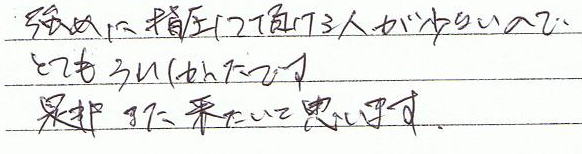 強めに指圧して頂ける人が少ないので
とてもうれしかったです
是非また来たいと思います.